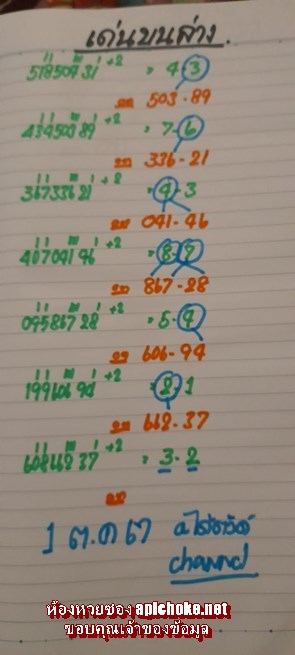 เด่นบนล่าง
518504 31 +2 = 4-3
ออก 503-89
434503 89 +2 = 7-6
ออก 336-21
367336 21 +2 = 4-3
ออก 041-46
407041 46 +2 = 8-7
ออก 867-28
095867 28 +2 = 5-9
ออก 606-94
199606 94 +2 = 2-1
ออก 612-37
608612 37 +2 = 3-2
ออก
1 ต.ค 67
channel
ห้องหวยซอง apichoke.net
ขอบคุณเจ้าของข้อมูล